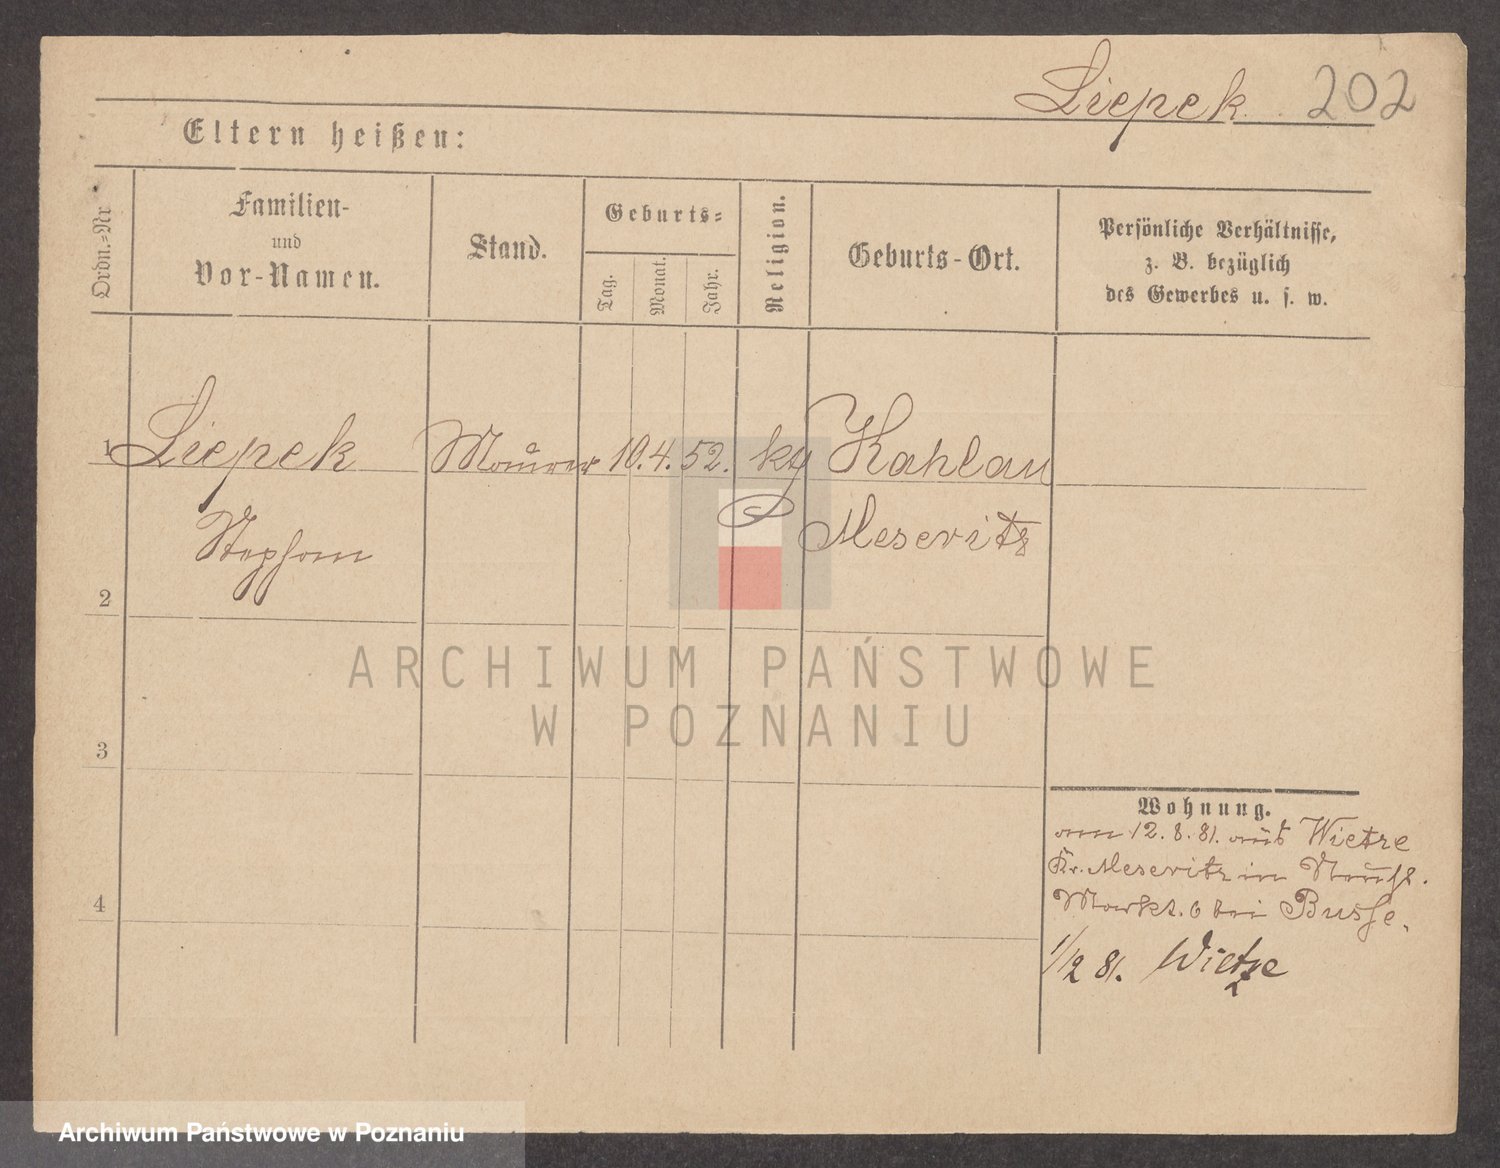 Liepek 202
Eltern heißen:
Ordn.=Nr
Familien-
und
Vor-Namen.
Stand.
Geburts=
Tag.
Monat.
Jahr.
Religion.
Geburts-Ort.
Persönliche Verhältnisse,
z. B. bezüglich
des Gewerbes u. s. w.
1 Liepek Maurer 10.4.52. Kahlau
Stephan Meseritz
2
3
4
Wohnung.
am 12.8.81. aus Wietze
Kr. Meseritz in
Markt. 6 bei Busse.
1/12 81. Wietze
ARCHIWUM PAŃSTWOWE
W POZNANIU
Archiwum Państwowe w Poznaniu